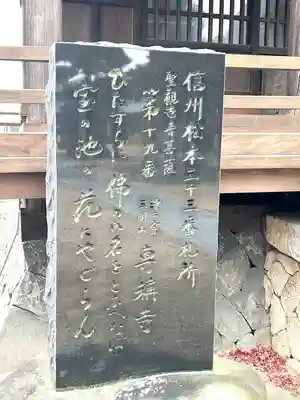 信州松本三十三番札所
聖観世音菩薩
第十九番
浄土宗
三川山
専称寺
ひたすらに佛のみ名をとなへなは
宝の池の花にやどらん